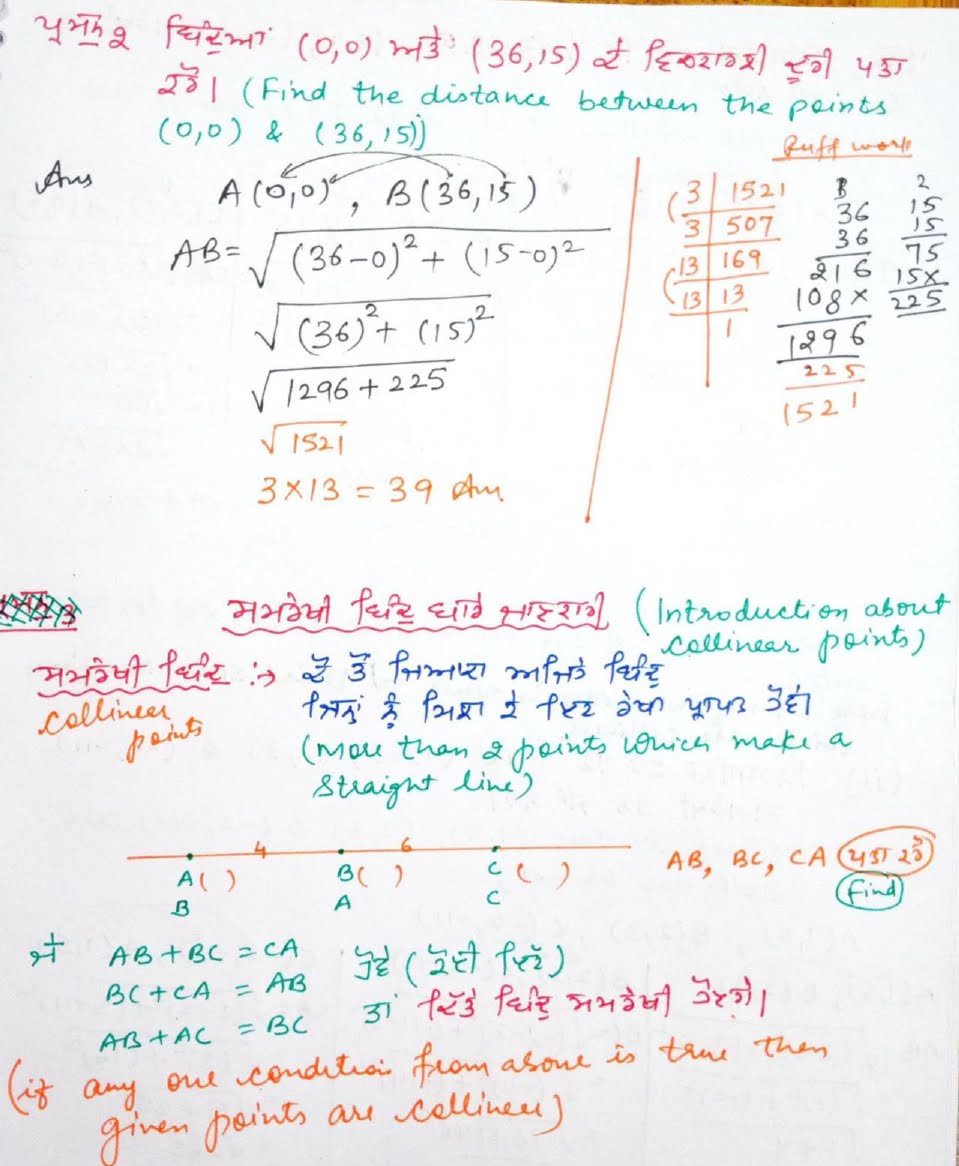 ਪ੍ਰਸ਼ਨ 2 ਬਿੰਦੂਆਂ (0,0) ਅਤੇ (36,15) ਦੇ ਵਿਚਕਾਰਲੀ ਦੂਰੀ ਪਤਾ
ਕਰੋ। (Find the distance between the points
(0,0) & (36,15))
Ans
A(0,0), B(36,15)
AB= √(36-0)² + (15-0)²
√(36)² + (15)²
√1296 + 225
√1521
3×13 = 39 Ans
Ruff work
3 | 1521
3 | 507
13 | 169
13 | 13
1
36
36
216
108×
1296
225
1521
2
15
15
75
15×
225
ਸਮਰੇਖੀ ਬਿੰਦੂ ਬਾਰੇ ਜਾਣਕਾਰੀ (Introduction about
collinear points)
ਸਮਰੇਖੀ ਬਿੰਦੂ :→ ਦੋ ਤੋਂ ਜਿਆਦਾ ਅਜਿਹੇ ਬਿੰਦੂ
collinear points
ਜਿਨਾਂ ਨੂੰ ਮਿਲਾ ਕੇ ਇਕ ਰੇਖਾ ਪ੍ਰਾਪਤ ਹੋਵੇ
(More than 2 points which make a
straight line)
4 6
A( ) B( ) C( )
B A C
AB, BC, CA ਪਤਾ ਕਰੋ
Find
ਜੇ AB + BC = CA ਹੋਵੇ (ਕੋਈ ਇਕ)
BC + CA = AB
ਤਾਂ ਦਿੱਤੇ ਬਿੰਦੂ ਸਮਰੇਖੀ ਹੋਣਗੇ।
AB + AC = BC
(if any one condition from above is true then
given points are collinear)